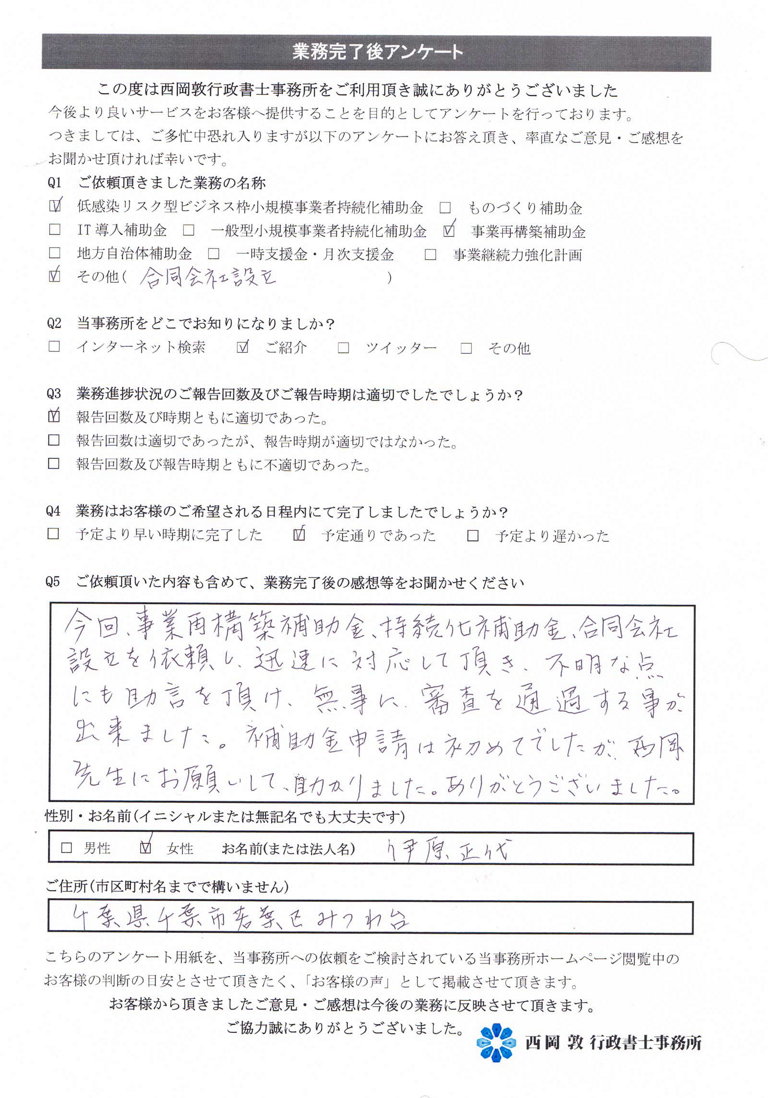 業務完了後アンケート
この度は西岡敦行政書士事務所をご利用頂き誠にありがとうございました
今後より良いサービスをお客様へ提供することを目的としてアンケートを行っております。
つきましては、ご多忙中恐れ入りますが以下のアンケートにお答え頂き、率直なご意見・ご感想を
お聞かせ頂ければ幸いです。
Q1 ご依頼頂きました業務の名称
☑ 低感染リスク型ビジネス枠小規模事業者持続化補助金 □ ものづくり補助金
□ IT導入補助金 □ 一般型小規模事業者持続化補助金 ☑ 事業再構築補助金
□ 地方自治体補助金 □ 一時支援金・月次支援金 □ 事業継続力強化計画
☑ その他( 合同会社設立 )
Q2 当事務所をどこでお知りになりましか？
□ インターネット検索 ☑ ご紹介 □ ツイッター □ その他
Q3 業務進捗状況のご報告回数及びご報告時期は適切でしたでしょうか？
☑ 報告回数及び時期ともに適切であった。
□ 報告回数は適切であったが、報告時期が適切ではなかった。
□ 報告回数及び報告時期ともに不適切であった。
Q4 業務はお客様のご希望される日程内にて完了しましたでしょうか？
□ 予定より早い時期に完了した ☑ 予定通りであった □ 予定より遅かった
Q5 ご依頼頂いた内容も含めて、業務完了後の感想等をお聞かせください
今回、事業再構築補助金、持続化補助金、合同会社
設立を依頼し、迅速に対応して頂き、不明な点
にも助言を頂け、無事に審査を通過する事が
出来ました。補助金申請は初めてでしたが、西岡
先生にお願いして、助かりました。ありがとうございました。
性別・お名前(イニシャルまたは無記名でも大丈夫です)
□ 男性 ☑ 女性 お名前(または法人名) 伊原正代
ご住所(市区町村名までで構いません)
千葉県千葉市若葉区みつわ台
こちらのアンケート用紙を、当事務所への依頼をご検討されている当事務所ホームページ閲覧中の
お客様の判断の目安とさせて頂きたく、「お客様の声」として掲載させて頂きます。
お客様から頂きましたご意見・ご感想は今後の業務に反映させて頂きます。
ご協力誠にありがとうございました。
西岡 敦 行政書士事務所